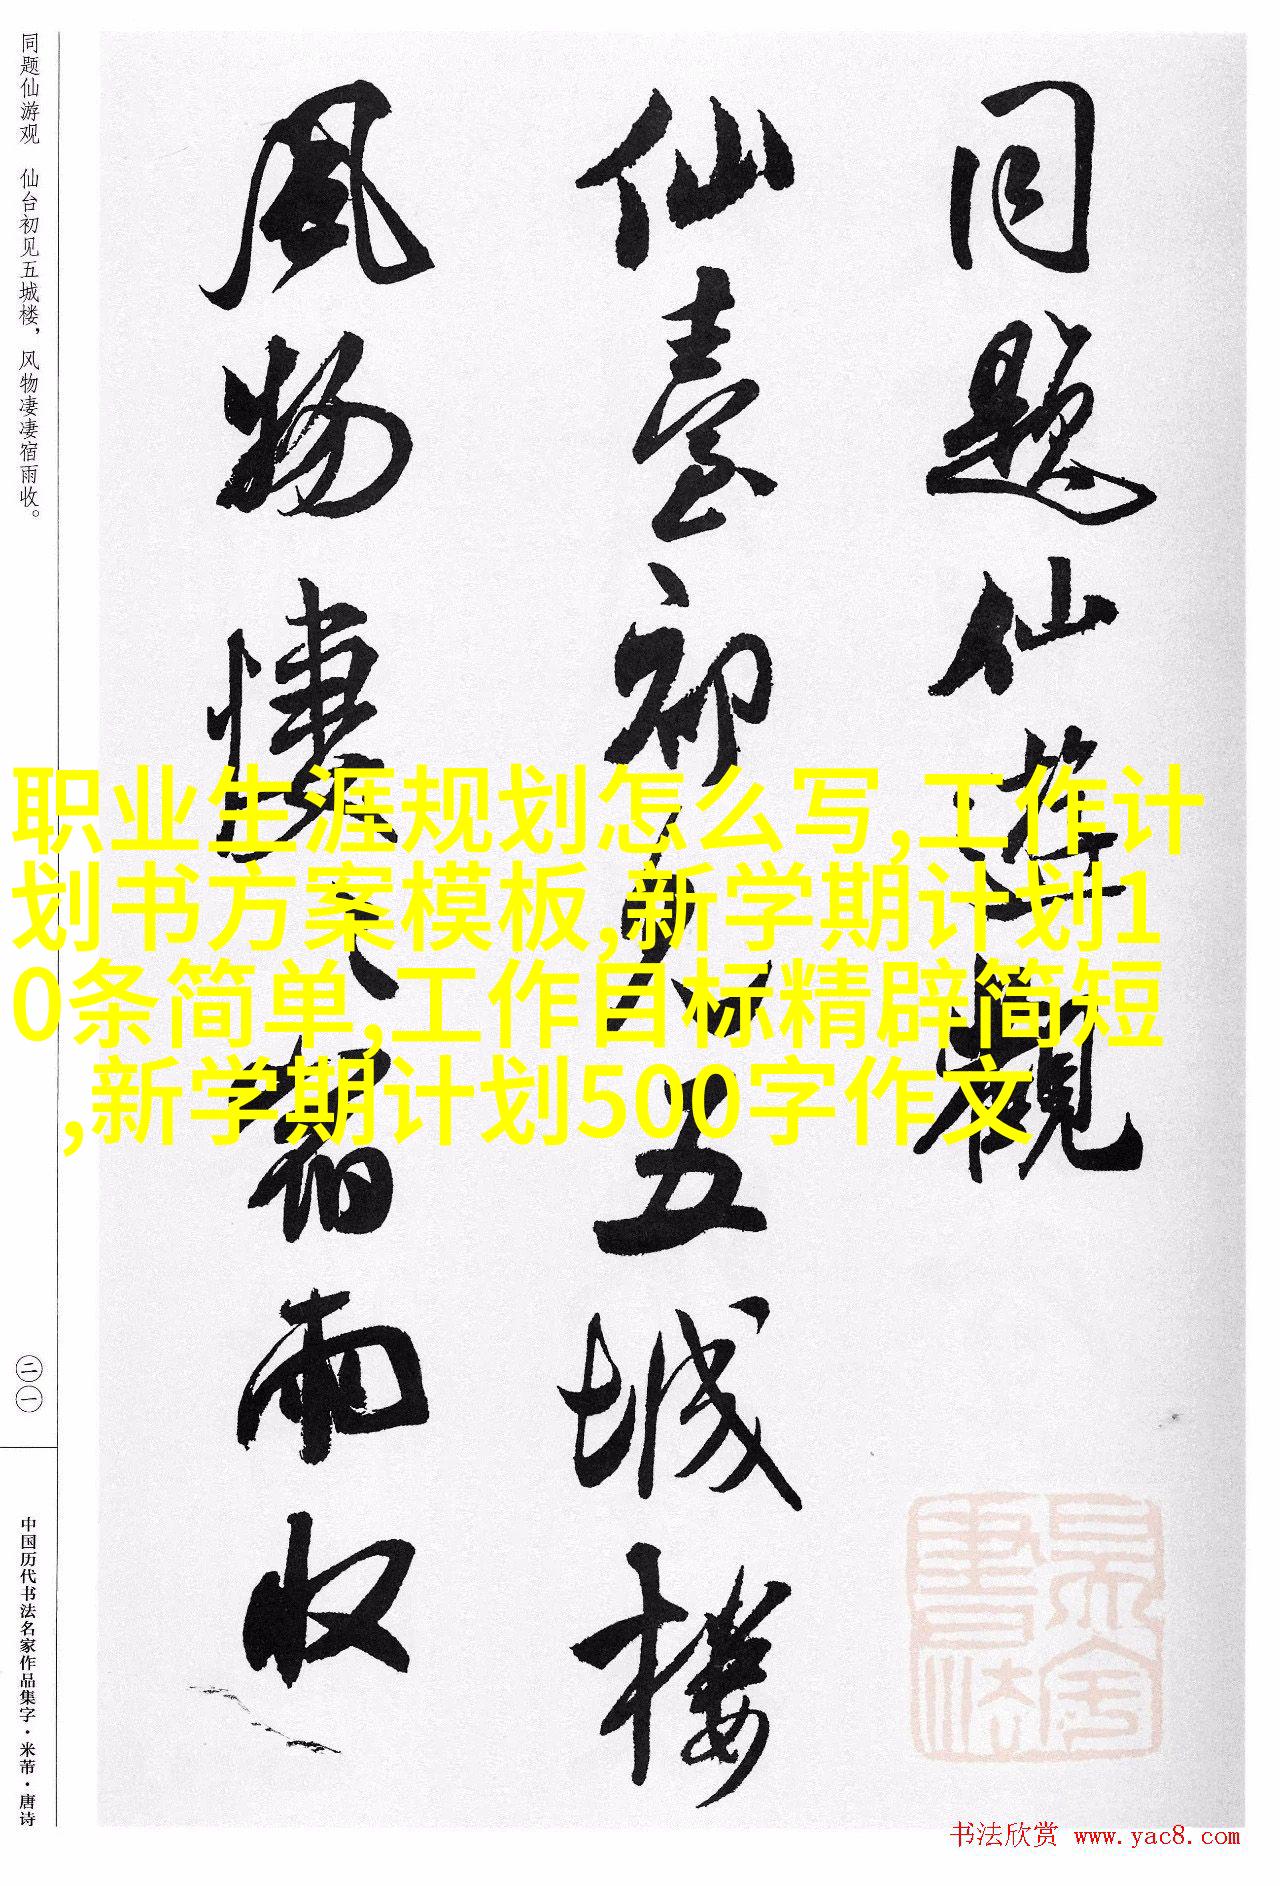 同题仙游观　仙台初见五城楼，风物凄凄宿雨收。
二一
中国历代书法名家作品集字·米芾·唐诗
同题仙游觀
仙臺初見五城楼
風物悽〻宿雨收
职业生涯规划怎么写,工作计
划书方案模板,新学期计划1
0条简单,工作目标精辟简短
,新学期计划500字作文
书法欣赏 www.yac8.com